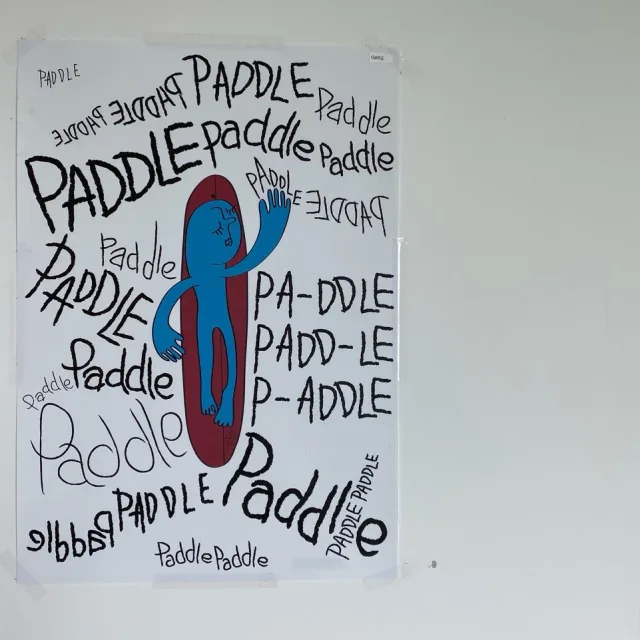 PADDLE
PADDLE
PADDLE
PADDLE
Paddle
PADDLE
paddle
Paddle
PADDLE
PADDLE
Paddle
PADDLE
PA-DDLE
PADD-LE
P-ADDLE
Paddle
paddle
Paddle
Paddle
PADDLE
PADDLE PADDLE
Paddle
Paddle Paddle